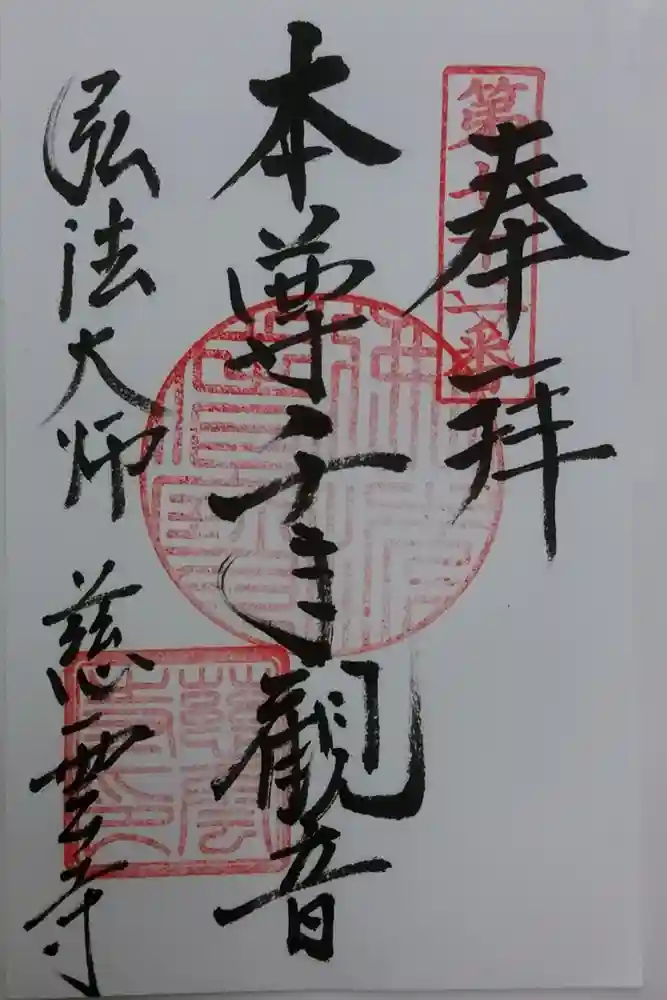 第七十二番
奉拝
本尊千手観音
弘法大師 慈雲寺